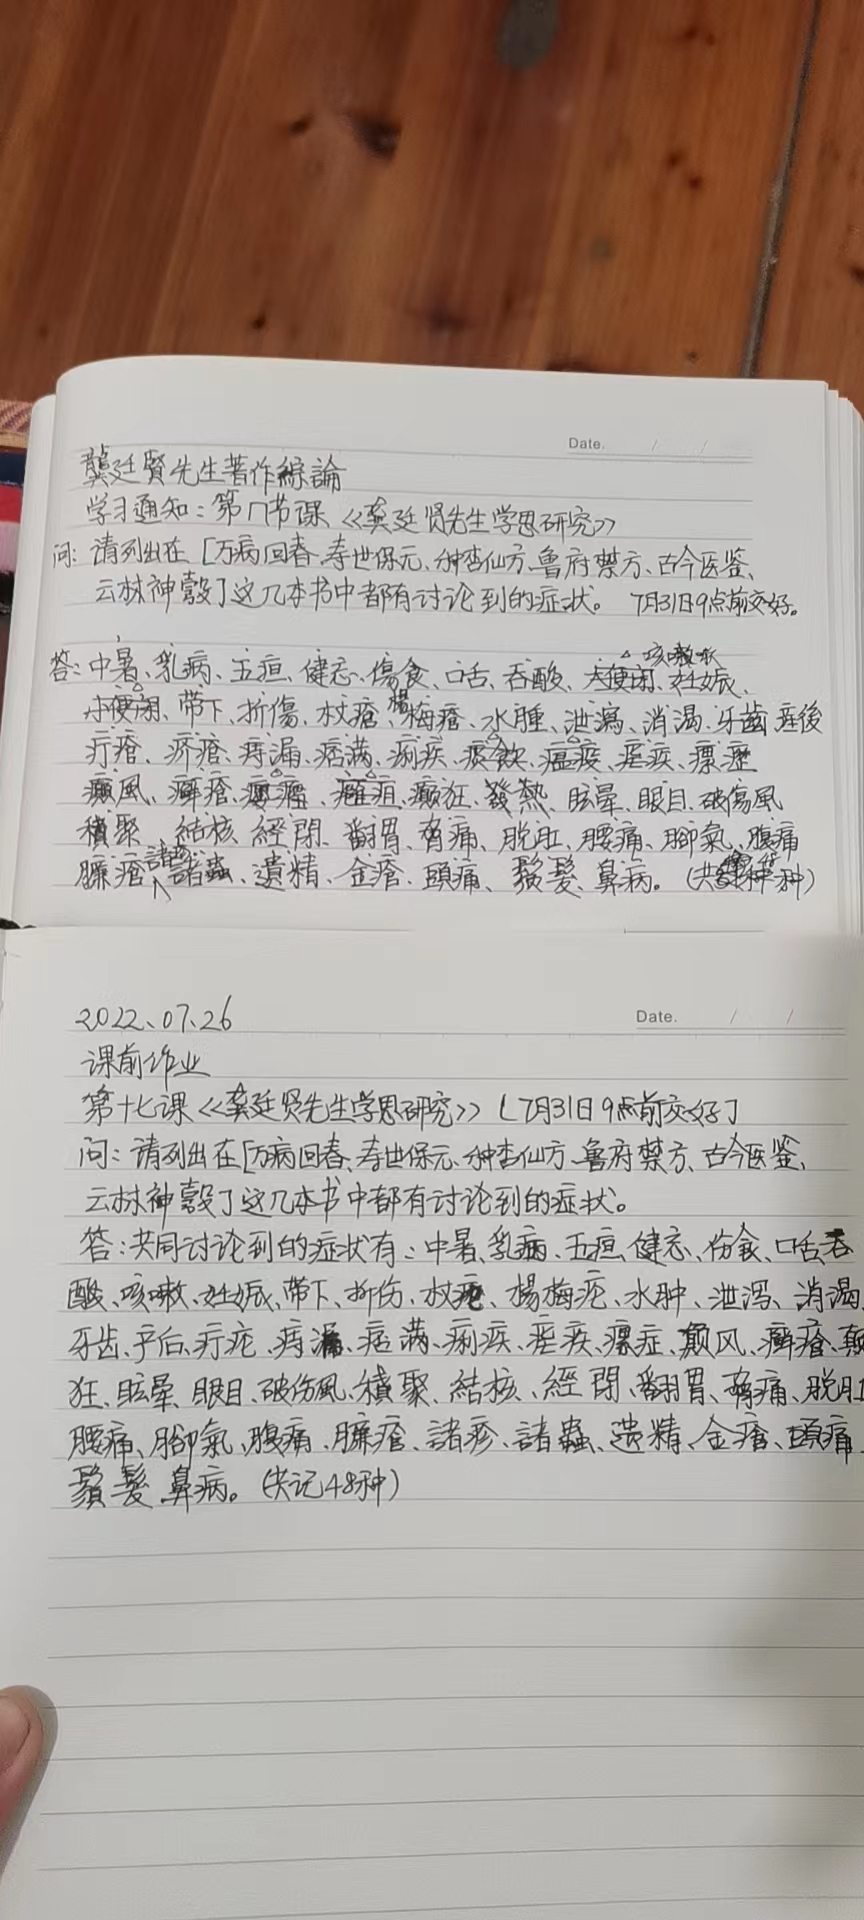 Date. / /
龔廷賢先生著作綜論
学习通知：第八节课《龚廷贤先生学思研究》
问：请列出在［万病回春、寿世保元、种杏仙方、鲁府禁方、古今医鉴、
云林神彀］这几本书中都有讨论到的症状。 7月31日9点前交好。
咳嗽
答：中暑、乳病、五疸、健忘、傷食、口舌、吞酸、大便闭、妊娠、
小便闭、带下、折傷、杖瘡、楊梅瘡、水腫、泄瀉、消渴、牙齒 産後
疔瘡、疥瘡、痔漏、痞满、痢疾、痰飲、瘟疫、瘧疾、瘰癧
癜風、癣瘡、癭瘤、癰疽、癫狂、發熱、眩暈、眼目、破傷風
積聚、結核、經閉、翻胃、脊痛、脱肛、腰痛、腳氣、腹痛
臁瘡、諸蟲、遺精、金瘡、頭痛、鬚髮、鼻病。（共 种）
2022、07、26
Date. / /
课前作业
第十七课《龚廷贤先生学思研究》［7月31日9点前交好］
问：请列出在［万病回春、寿世保元、种杏仙方、鲁府禁方、古今医鉴、
云林神彀］这几本书中都有讨论到的症状。
答：共同讨论到的症状有：中暑、乳病、五疸、健忘、伤食、口舌、吞
酸、咳嗽、妊娠、带下、折伤、杖疮、楊梅疮、水肿、泄泻、消渴、
牙齿、产后、疔疮、痔漏、痞满、痢疾、瘧疾、瘰症、癜风、癣瘡、颠
狂、眩晕、眼目、破伤風、積聚、結核、經閉、翻胃、脊痛、脱肛
腰痛、腳氣、腹痛、臁瘡、諸疹、諸蟲、遗精、金瘡、頭痛、
鬚髮 鼻病。（共记48种）